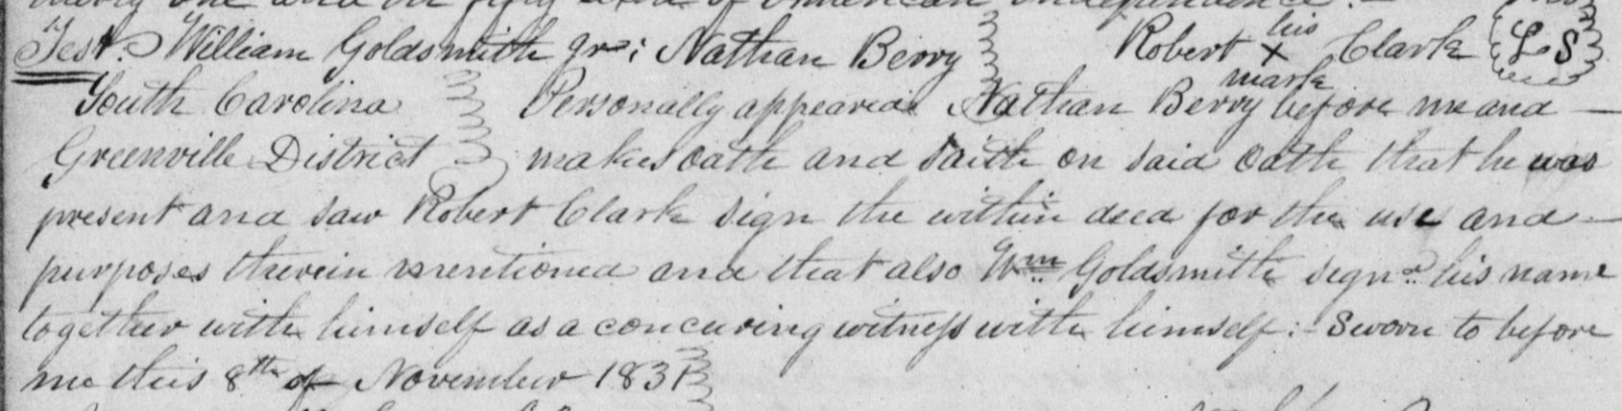 and in fifty sixth of American Independence:-
Test. William Goldsmith Jr: Nathan Berry Robert his X mark Clark L S
South Carolina Personally appeared Nathan Berry before me and
Greenville District makes oath and saith on said oath that he was
present and saw Robert Clark sign the within deed for the use and
purposes therein mentioned and that also Wm Goldsmith signd his name
together with himself as a concuring witness with himself:- Sworn to before
me this 8th of November 1831